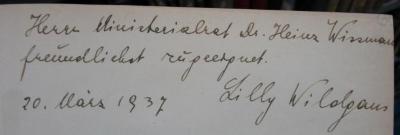 Herrn Ministerialrat Dr. Heinz Wissmann
freundlichst zugeeignet.
20. März 1937 Lilly Wildgans